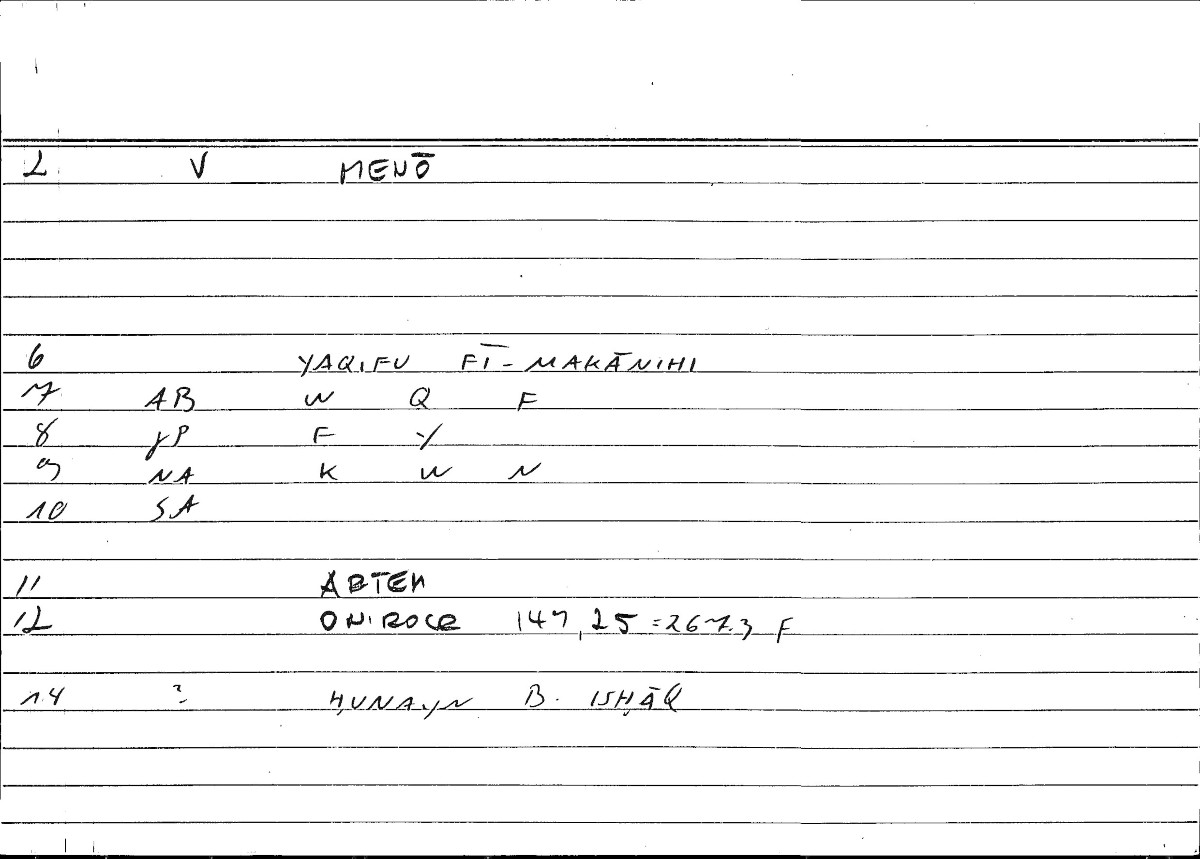 2 V MENŌ
6 YAQIFU FĪ-MAKĀNIHI
7 AB W Q F
8 γP F Y
9 NA K W N
10 SA
11 ARTEM
12 ONIROCR 147,25=267.3 F
14 ? ḤUNAYN B. ISḤĀQ